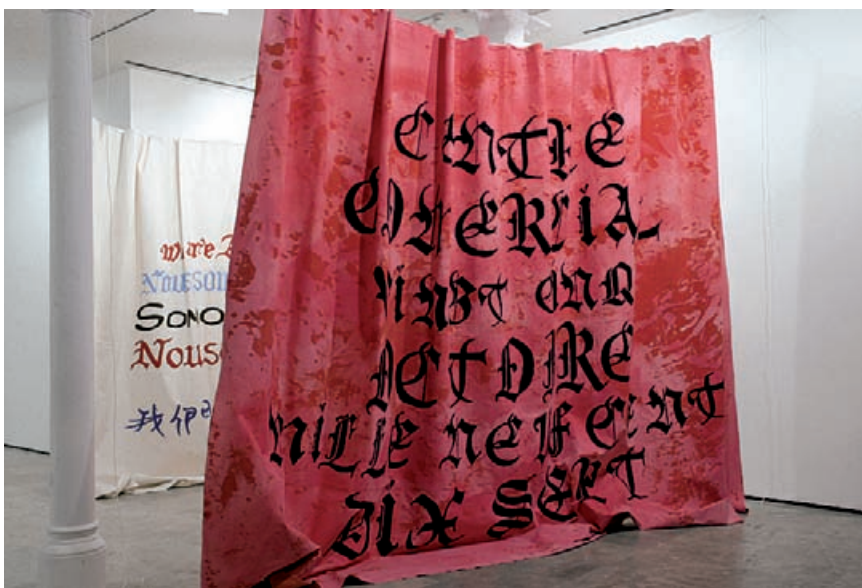 CENTRE
COMMERCIAL
VINGT CINQ
OCTOBRE
MILLE NEUF CENT
DIX SEPT
we're
NOUSSOM
SONO
NOUS
我们